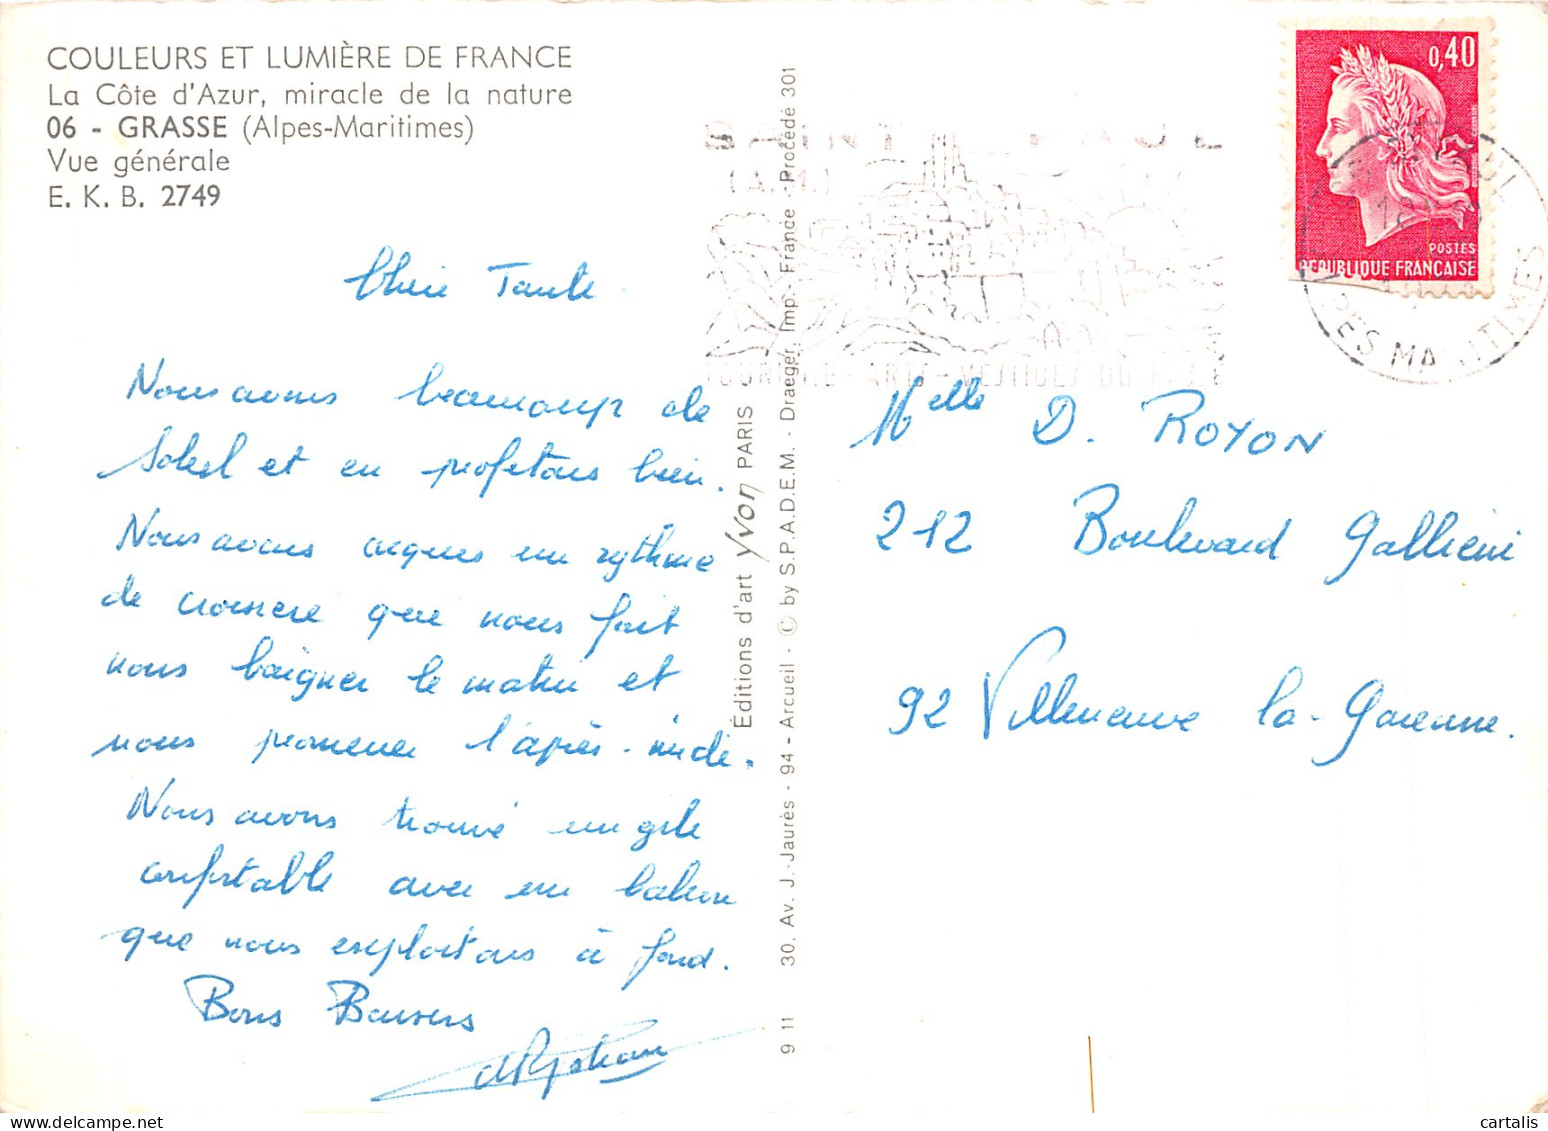 COULEURS ET LUMIÈRE DE FRANCE
La Côte d'Azur, miracle de la nature
06 - GRASSE (Alpes-Maritimes)
Vue générale
E. K. B. 2749
Chère Tante
Nous avons beaucoup de
Soleil et en profitons bien.
Nous avons acquis un rythme
de croisière que nous fait
nous baigner le matin et
nous promener l'après-midi.
Nous avons trouvé un gîte
confortable avec un balcon
que nous exploitons à fond.
Bons Baisers
Éditions d'art Yvon PARIS
9 11 30, Av. J.-Jaurès - 94 - Arcueil - © by S.P.A.D.E.M. - Draeger, Imp. - France - Procédé 301
0,40
POSTES
REPUBLIQUE FRANÇAISE
(A.M.)
ALPES MARITIMES
Melle D. ROYON
212 Boulevard Gallieni
92 Villeneuve la-Garenne.
cartalis